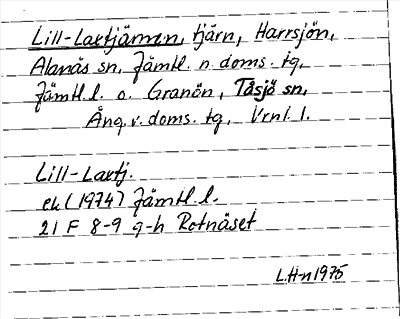 Lill-Laxtjärnen, tjärn, Harrsjön,
Alanäs sn, Jämtl. n. doms. tg,
Jämtl. l. o. Granön, Tåsjö sn,
Ång. v. doms. tg, Vrnl. l.
Lill-Laxtj.
ek (1974) Jämtl. l.
21 F 8-9 g-h Rotnäset
L.H-n 1975